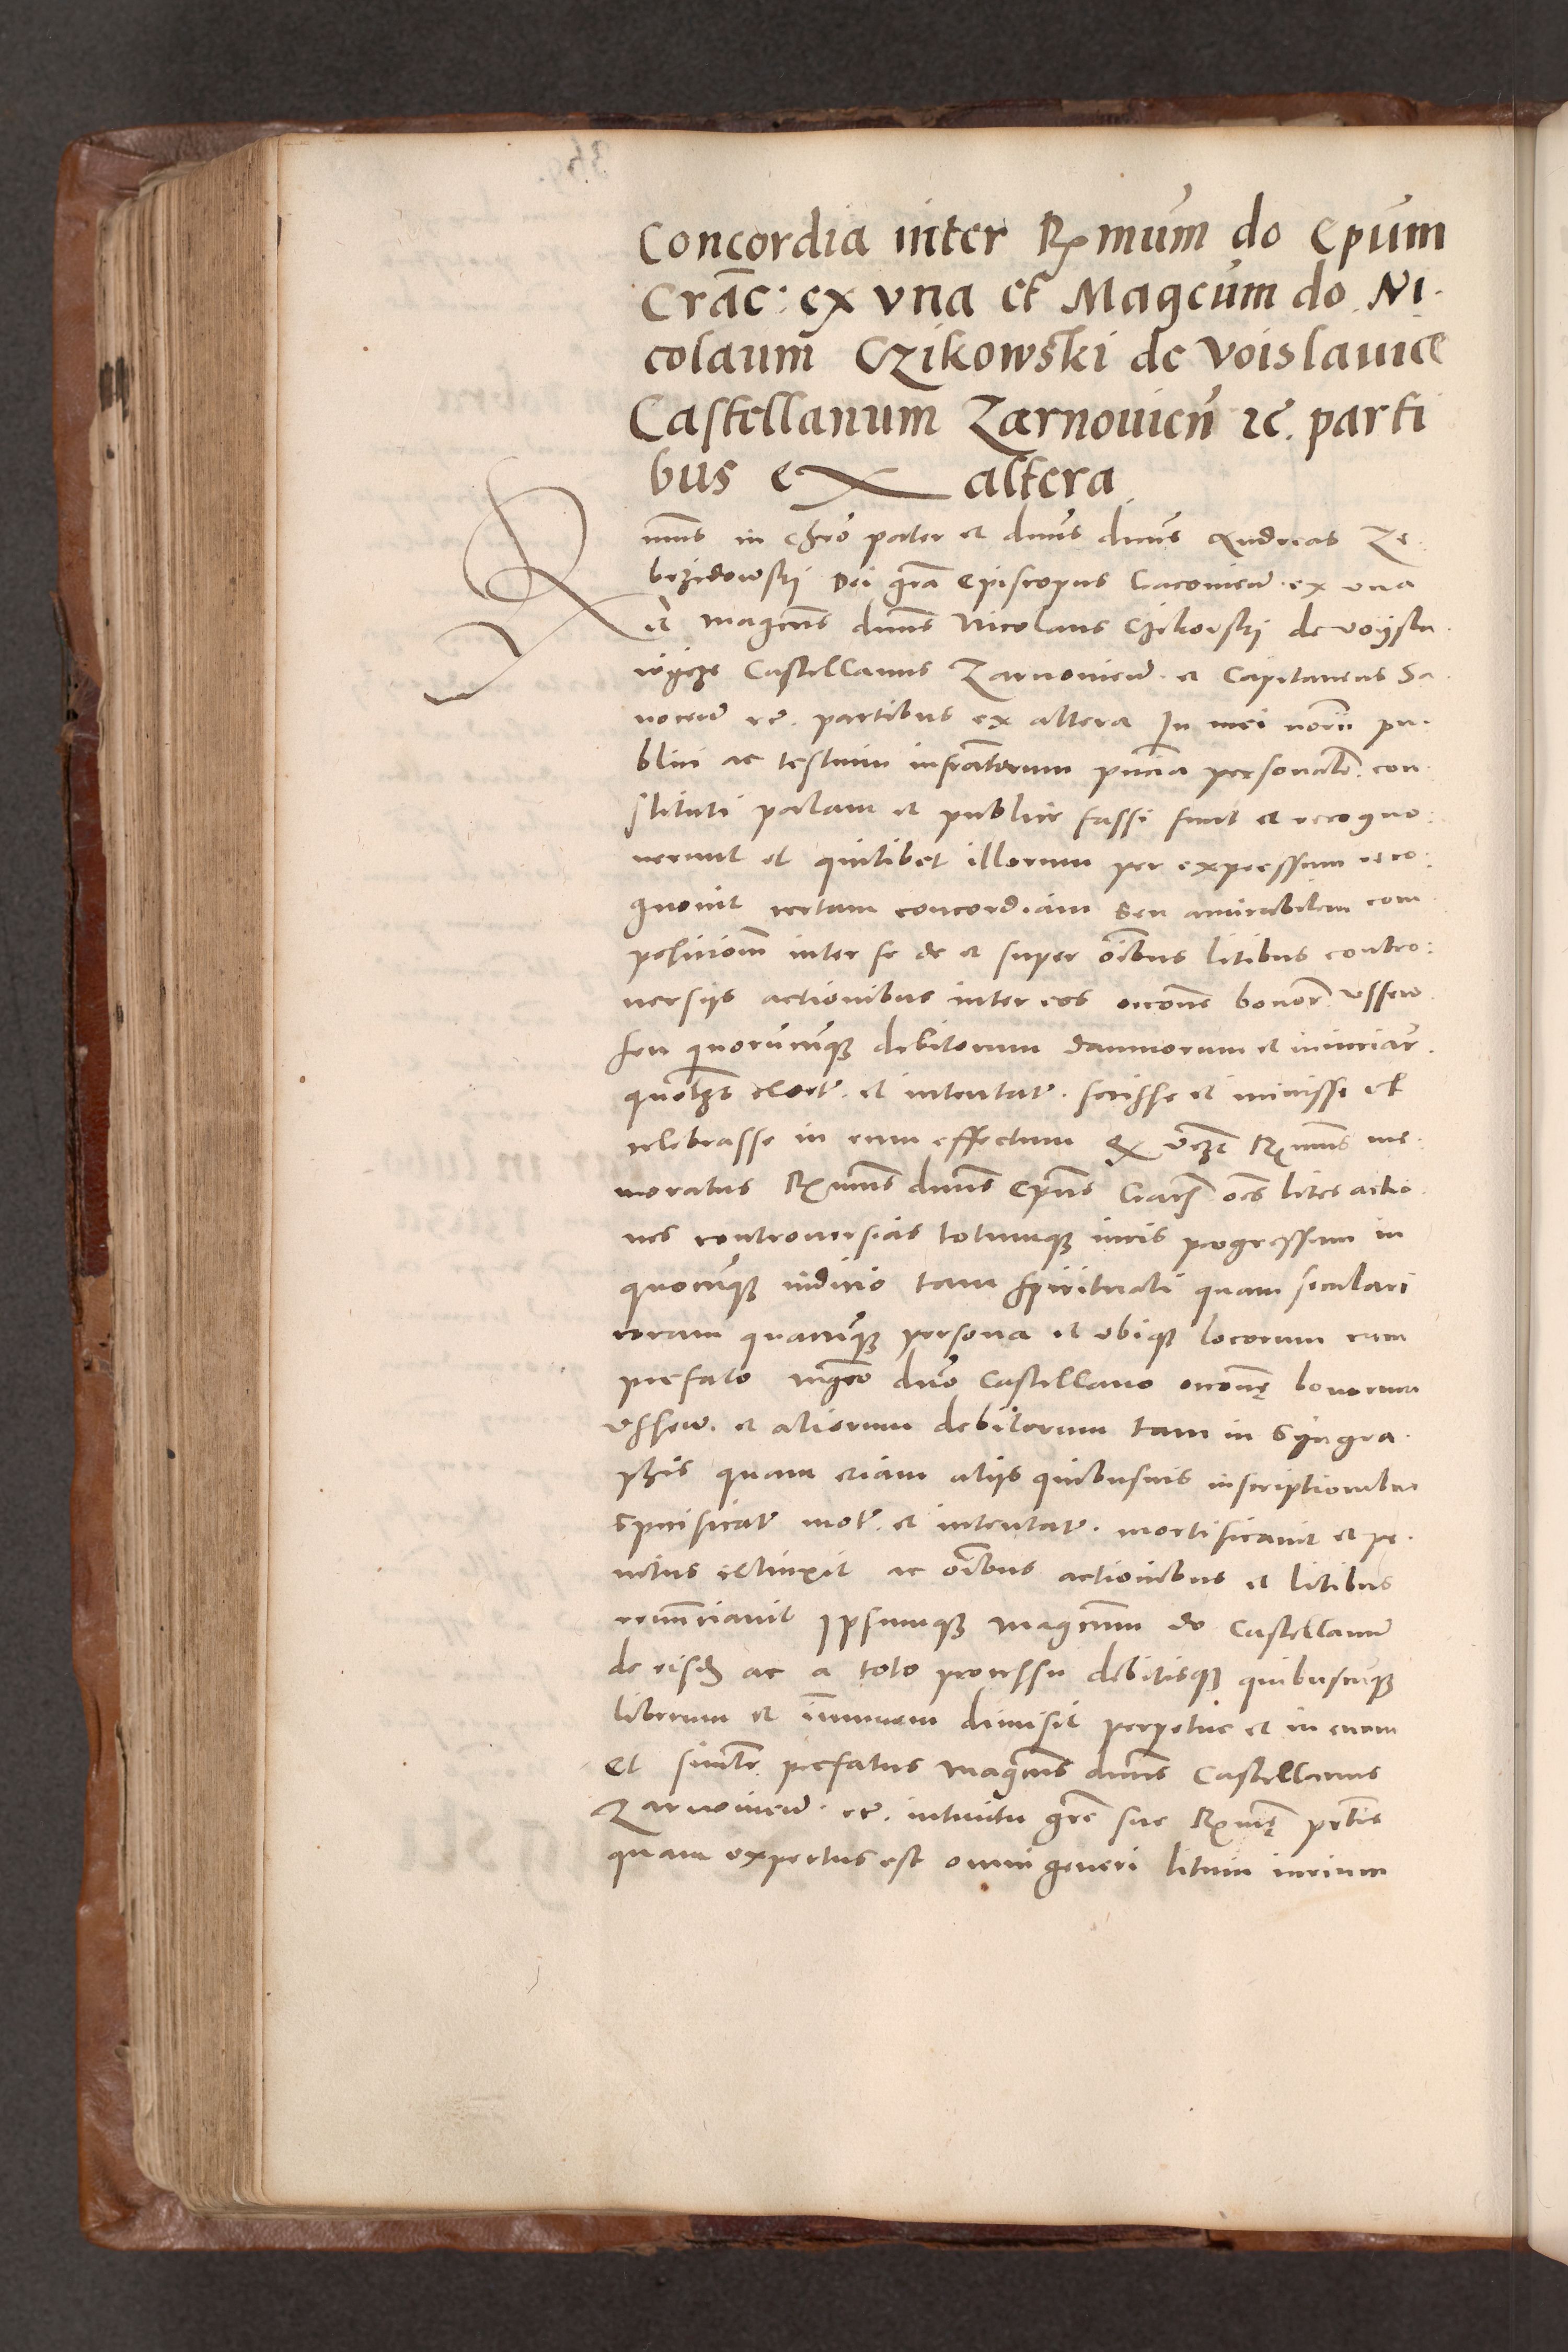 Concordia inter Rmum do Epum
Cranc: ex vna et Magcum do. Ni.
colaum Czikowski de voislauice
Castellanum Zarnouien̄ etc. parti
bus ex altera
Rmus in chro pater et dnus dnus Andreas Ze.
brzidowski Dei gra Episcopus Cracouien̄ ex vna
et magcus dnus Nicolaus Czikowski de voysla.
wycze Castellanus Zarnouien̄. et Capitaneus Sa.
nocen̄ etc. partibus ex altera In mei norii pu.
blici ac testium infrascriptorum pntia personalr. con.
stituti palam et publice fassi sunt et recogno:
uerunt et quilibet illorum per expressum reco:
gnouit certam concordiam Seu amicabilem com
posicionem inter se de et super oibus litibus contro:
uersiis actionibus inter eos bonor
seu quorumcunque debitorum damnorum et iniuriar.
exort. et intentat. fecisse et iniisse et
celebrasse in eum effectum Rmus me.
moratus Rmus dnus Epus Crac oes lites actio
nes controuersias totumque iuris progressum in
quocunque iudicio tam spirituali quam seculari
coram quacunque persona et vbique locorum cum
prefato mgco dno Castellano bonorum
et aliorum debitorum tam in Syngra.
phis quam etiam aliis quibusuis inscriptionibus
Specificat mot. et intentat. mortificauit et pe.
nitus extinxit ac oibus actionibus et litibus
renunciauit ipsumque magcum do Castellanum
de eisdem ac a toto processu debitisque quibuscunque
liberum et immunem dimisit perpetue et in euum
Et similr prefatus magcus dnus Castellanus
Zarnouien̄. etc. intuitu gre sue Rme ptis
quam expertus est omni generi litium iurium